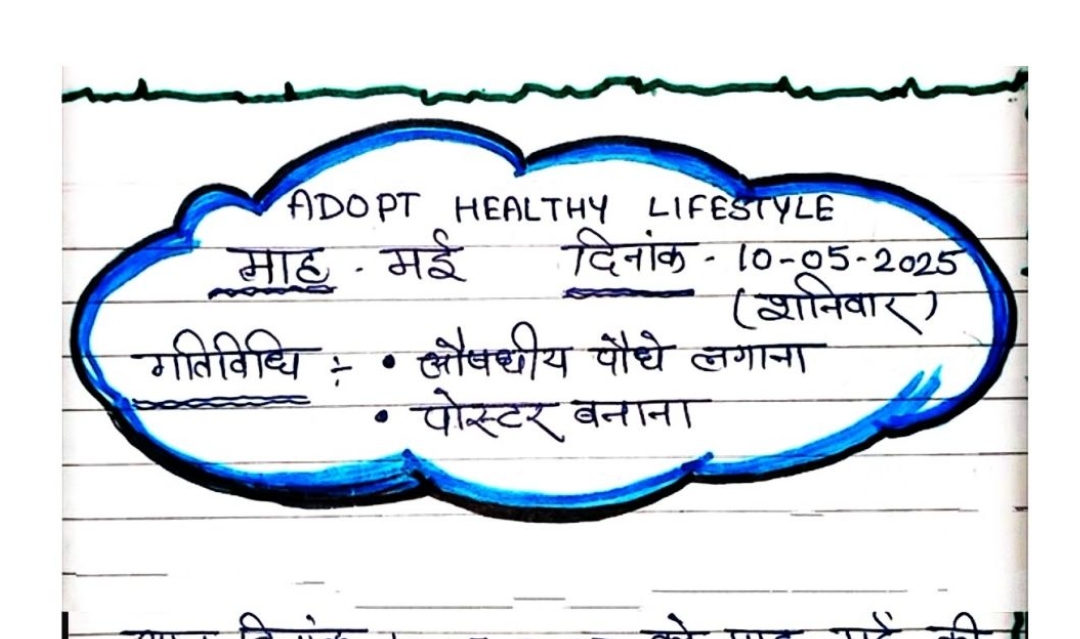 ADOPT HEALTHY LIFESTYLE
माह - मई दिनांक - 10-05-2025
(शनिवार)
गतिविधि ÷ • औषधीय पौधे लगाना
• पोस्टर बनाना